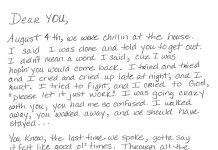 Dear YOU,
August 4th, we were chillin at the house.
I said I was done and told you to get out.
I didn't mean a word I said, cuz I was
hopin' you would come back. I tried and tried
and I cried and cried up late at night, and it
hurt. I tried to fight, and I cried to God,
"please let it just work!" I was going crazy
with you, you had me so confused. I walked
away, you walked away, and we should have
stayed...
You know, the last time we spoke, gotta say
it felt like good ol' times. Through all the